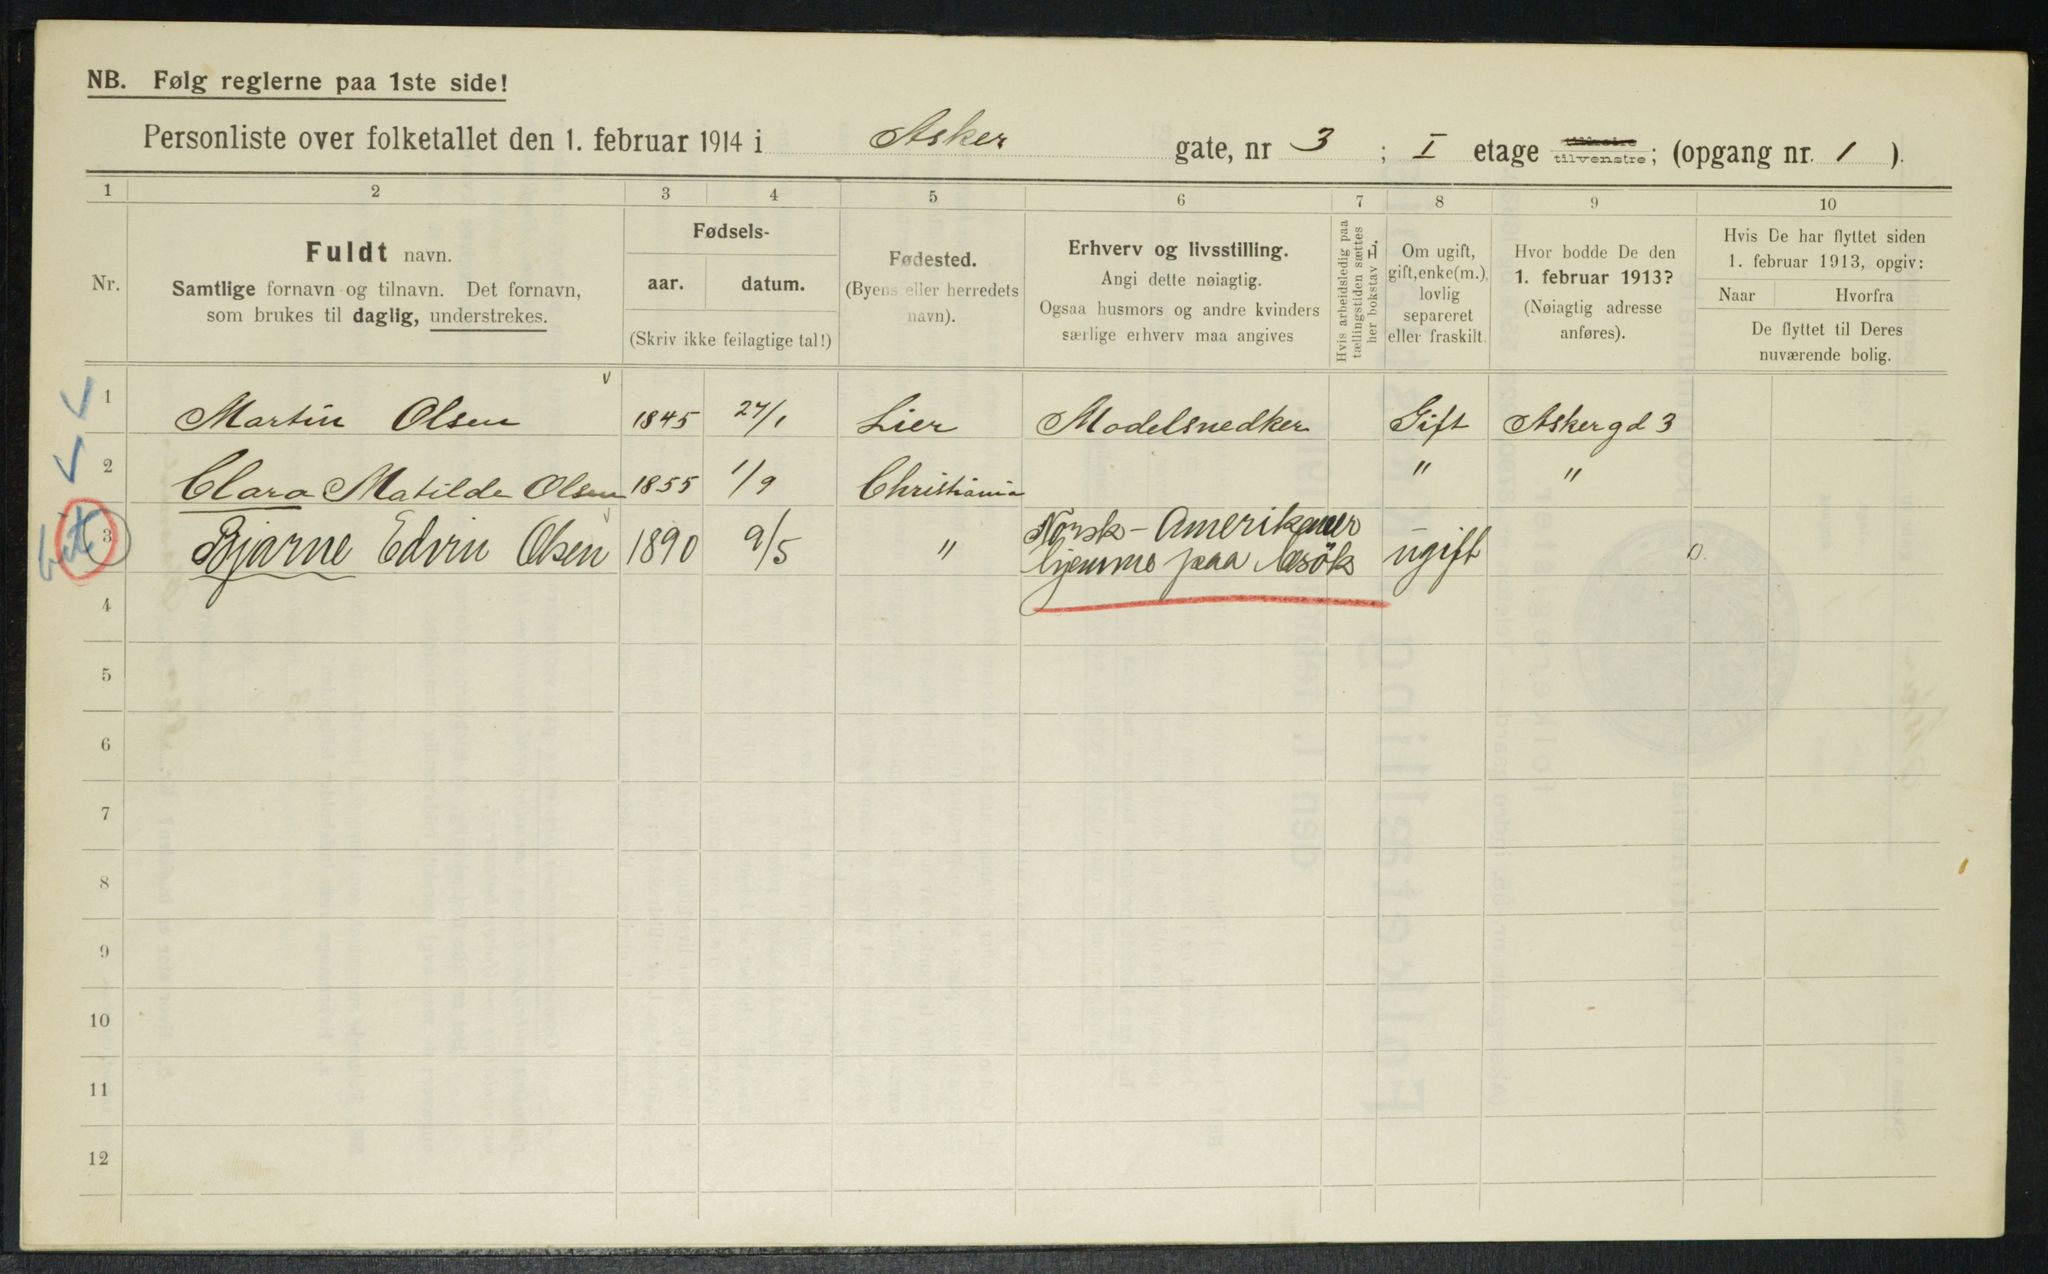 NB. Følg reglerne paa 1ste side!
Personliste over folketallet den 1. februar 1914 i Asker gate, nr 3 ; I etage tilhøire tilvenstre; (opgang nr. 1 ).
1 2 3 4 5 6 7 8 9 10
Nr.
Fuldt navn.
Samtlige fornavn og tilnavn. Det fornavn,
som brukes til daglig, understrekes.
Fødsels-
aar. datum.
(Skriv ikke feilagtige tal!)
Fødested.
(Byens eller herredets
navn).
Erhverv og livsstilling.
Angi dette nøiagtig.
Ogsaa husmors og andre kvinders
særlige erhverv maa angives
Hvis arbeidsledig paa
tællingstiden sættes
her bokstav L.
Om ugift,
gift, enke(m.),
lovlig
separeret
eller fraskilt.
Hvor bodde De den
1. februar 1913?
(Nøiagtig adresse
anføres).
Hvis De har flyttet siden
1. februar 1913, opgiv:
Naar Hvorfra
De flyttet til Deres
nuværende bolig.
1 Martin Olsen 1845 27/1 Lier Modelsnedker Gift Askergd 3
2 Clara Matilde Olsen 1855 1/9 Christiania " "
3 Bjarne Edvin Olsen 1890 9/5 " Norsk-Amerikaner
hjemme paa besök ugift
4
5
6
7
8
9
10
11
12